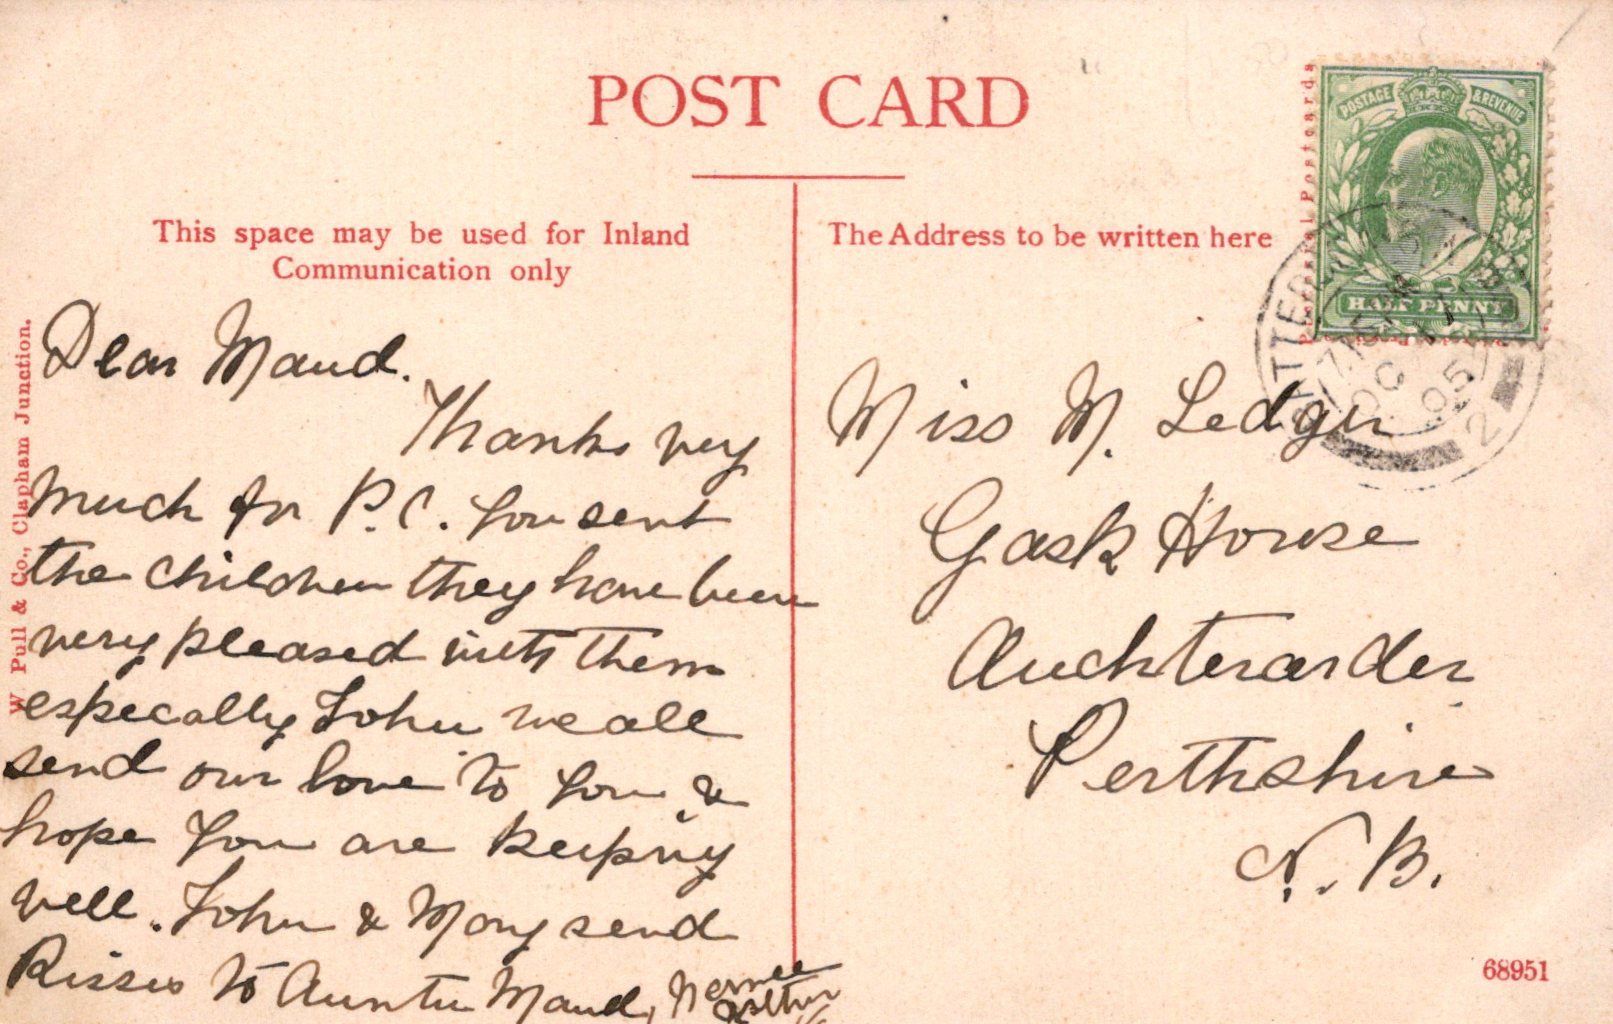 POST CARD
This space may be used for Inland
Communication only
The Address to be written here
POSTAGE & REVENUE
HALF PENNY
W Pull & Co., Clapham Junction.
Dear Maud.
Thanks very
much for P.C. you sent
the children they have been
very pleased with them
especally John we all
send our love to you &
hope you are keeping
well. John & Mary send
Kisses to Auntie Maud,
Miss M. Ledger
Gask House
Auchterarder
Perthshire
N.B.
OC
05
2
68951